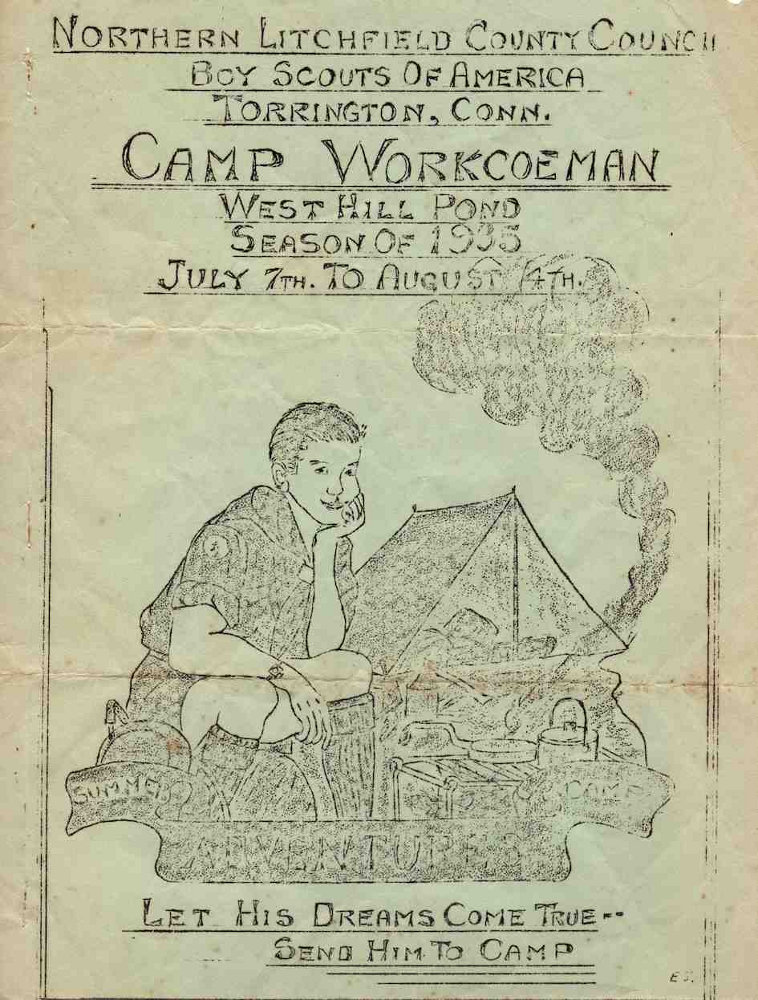 NORTHERN LITCHFIELD COUNTY COUNCIL
BOY SCOUTS OF AMERICA
TORRINGTON, CONN.
CAMP WORKCOEMAN
WEST HILL POND
SEASON OF 1935
JULY 7TH. TO AUGUST 4TH.
SUMMER CAMP
ADVENTURES
LET HIS DREAMS COME TRUE--
SEND HIM TO CAMP
E S.